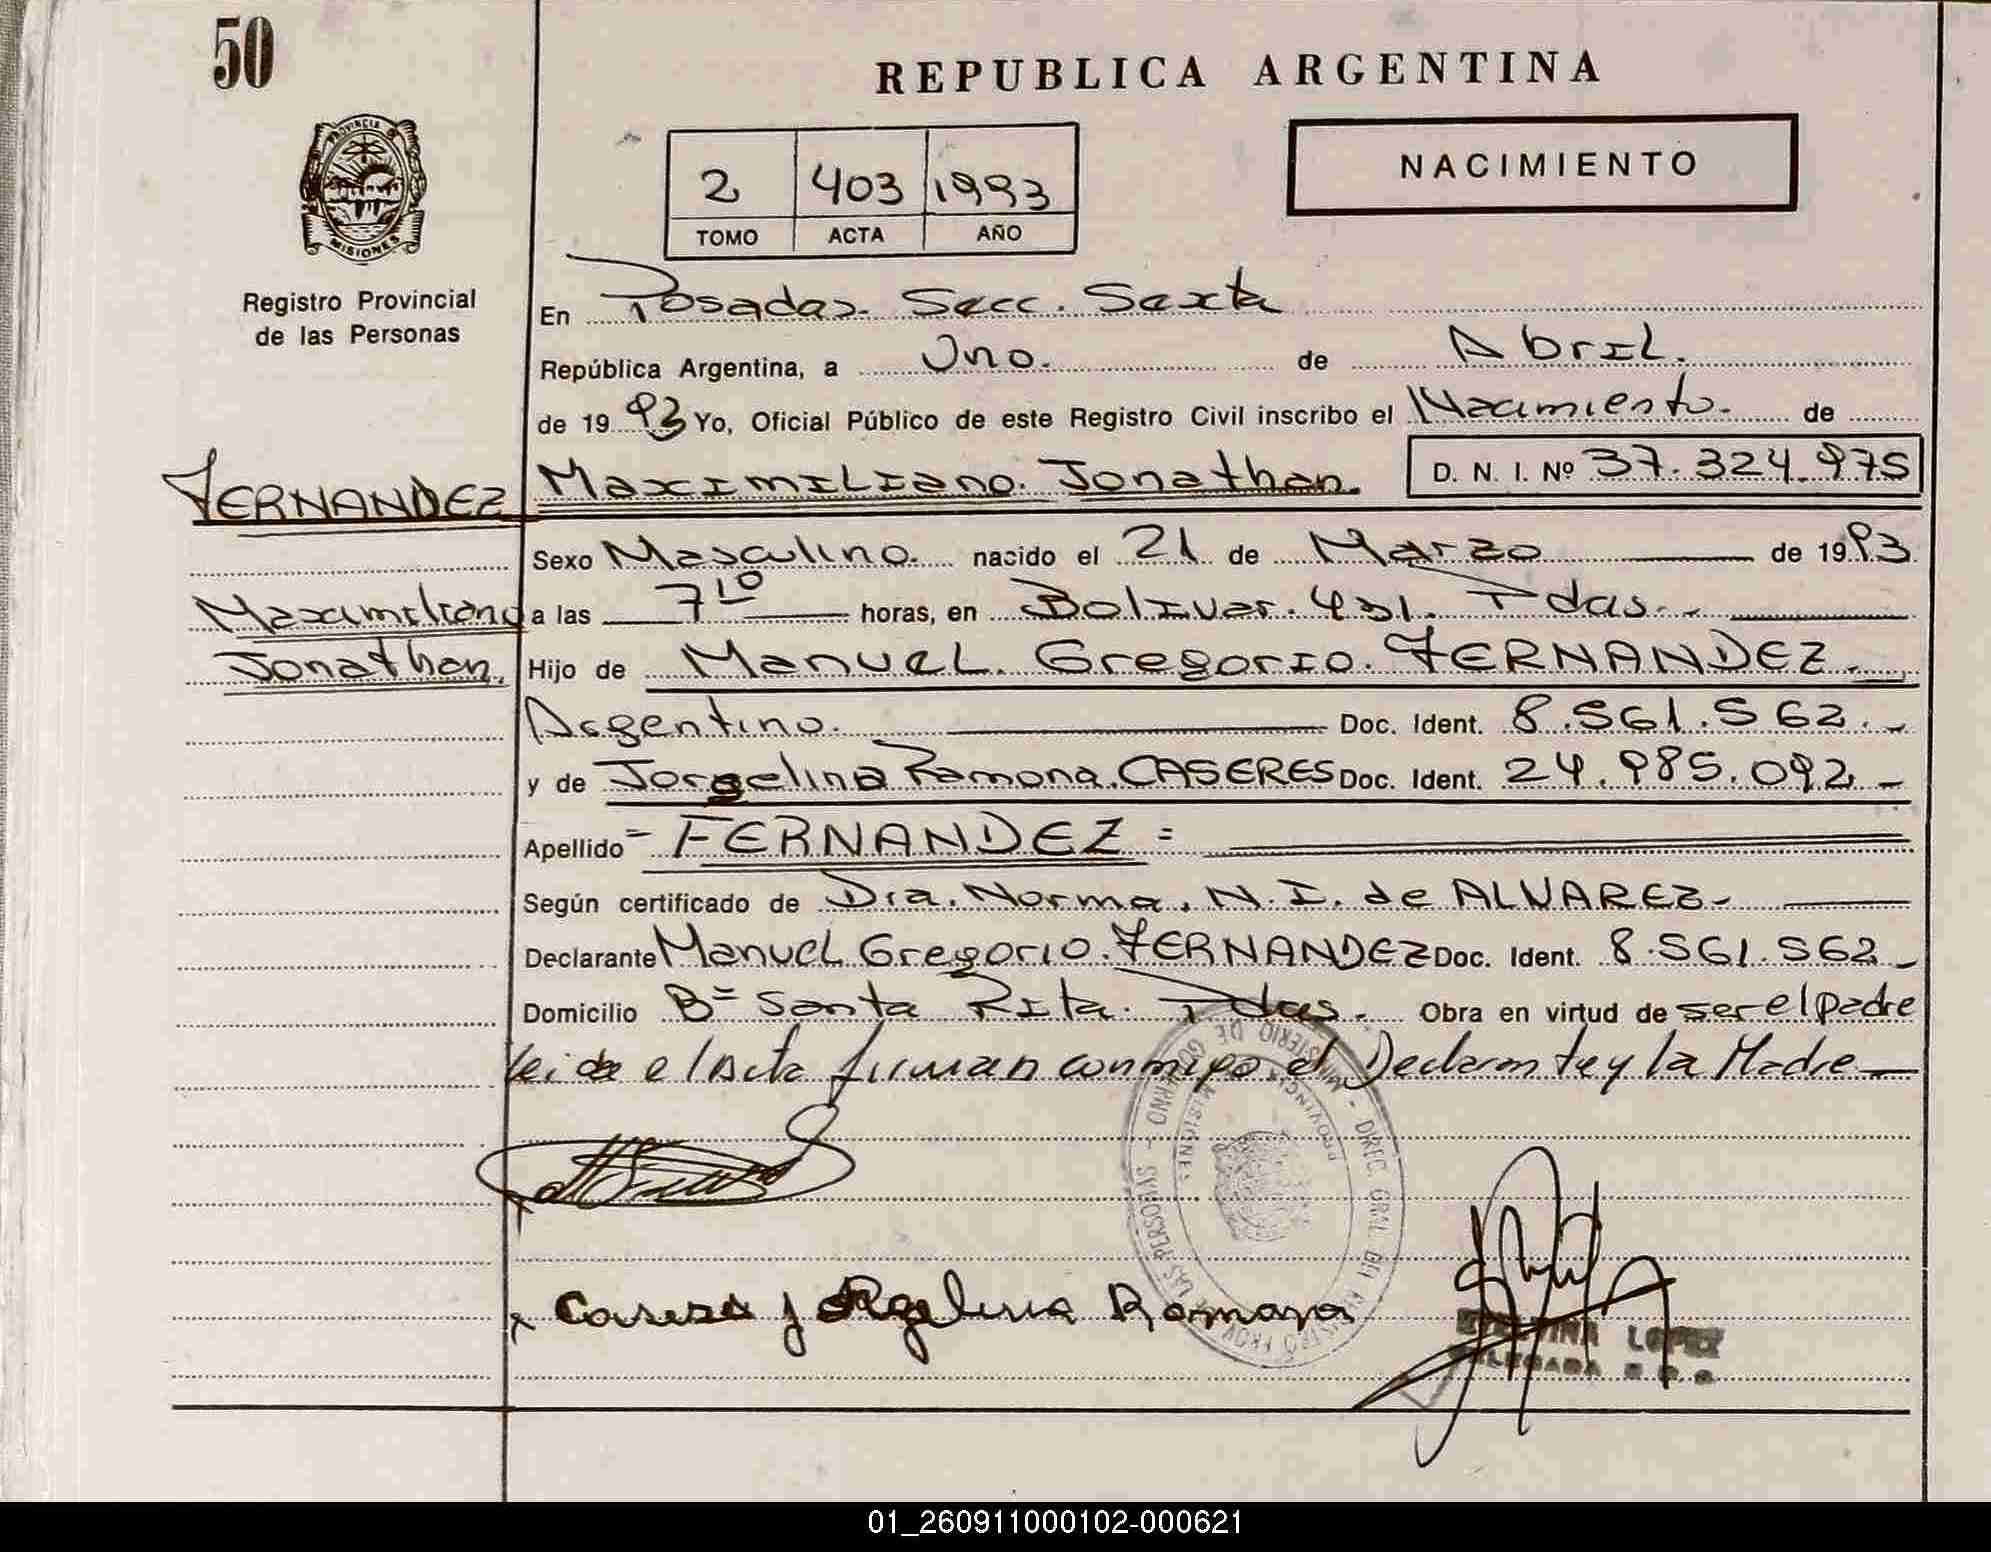 50
REPUBLICA ARGENTINA
PROVINCIA
MISIONES
2 403 1993
TOMO ACTA AÑO
NACIMIENTO
Registro Provincial
de las Personas
En Posadas. Secc. Sexta
República Argentina, a Uno. de Abril.
de 1993 Yo, Oficial Público de este Registro Civil inscribo el Nacimiento. de
FERNANDEZ Maximiliano. Jonathan. D. N. I. Nº 37.324.975
Sexo Masculino. nacido el 21 de Marzo de 1993.
Maximiliano a las 7 10 horas, en Bolivar. 431. Pdas.-
Jonathan. Hijo de Manuel. Gregorio. FERNANDEZ.
Argentino. Doc. Ident. 8.561.562.-
y de Jorgelina Ramona. CASERES Doc. Ident. 24.985.092 -
Apellido = FERNANDEZ =
Según certificado de Dra. Norma. N. I. de ALVAREZ-
Declarante Manuel Gregorio. FERNANDEZ Doc. Ident. 8.561.562 -
Domicilio Bº Santa Rita. Pdas. Obra en virtud de ser el padre
leida el Acta firman conmigo el Declarante y la Madre
MINISTERIO DE GOBIERNO - DIREC. GRAL. DEL REGISTRO PROV. DE LAS PERSONAS
PROVINCIA MISIONES
x Caseres Jorgelina Ramona
LOPEZ
01_260911000102-000621